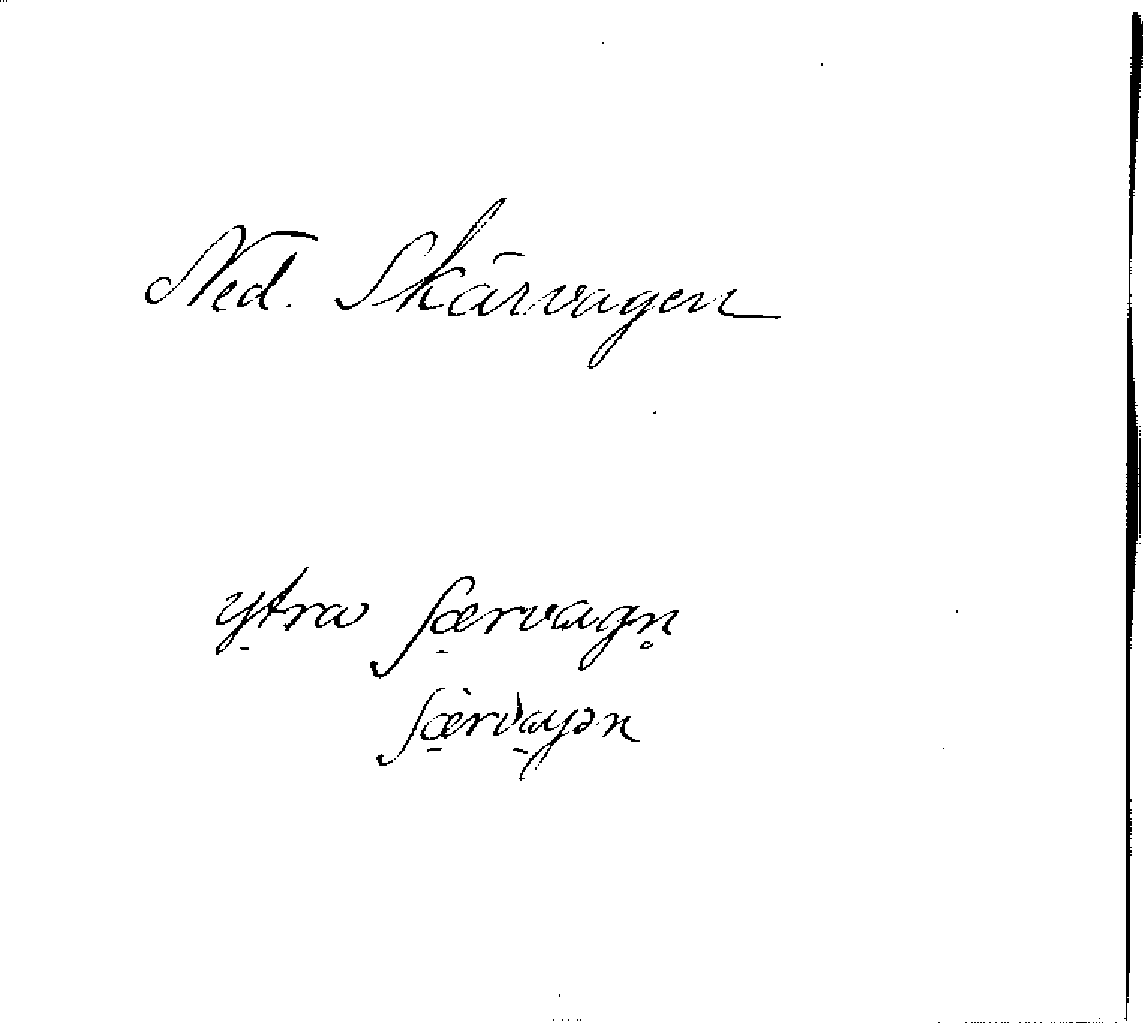 Ned. Skärvagen
y̱tra ʃæ̱rvagn̥
ʃæ̱̀rva̱gən